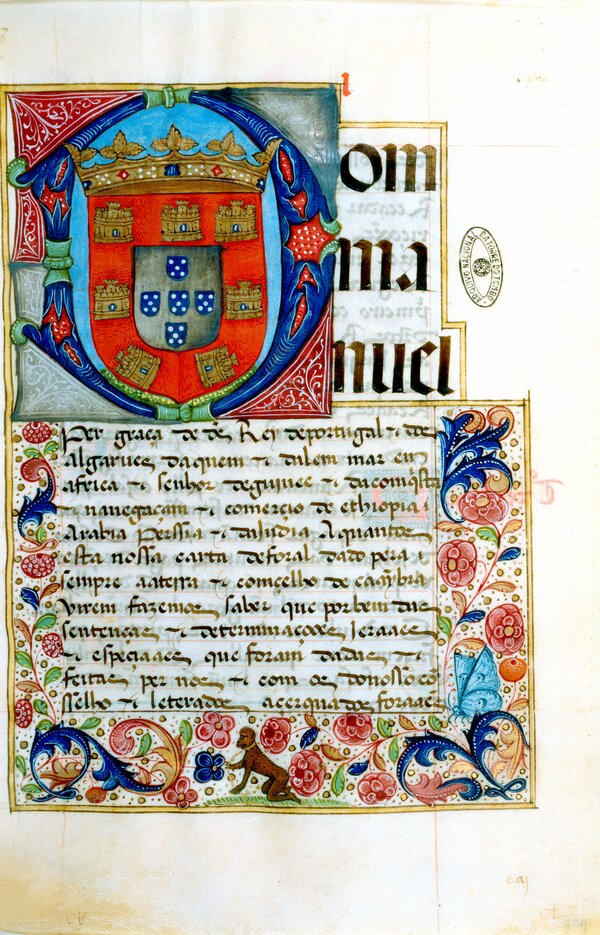 Dom
ma
nuel
Per graça de ds Rey deportugal ⁊ dos
Algarues daquem ⁊ dalem mar em
africa ⁊ senhor deguinee ⁊ da comq̃sta
⁊ nauegaçam ⁊ comercio de ethiopia
Arabia Perssia ⁊ da Jndia A quantos
esta nossa carta deforal dado pera
sempre aaterra ⁊ comçelho de caãbra
virem fazemos saber que porbem das
sentenças ⁊ determinaçoões Jeraaes
⁊ especiaaes que foram dadas ⁊
feitas per nos ⁊ com os do nosso cõ
sselho ⁊ leterados acerqua dos foraaes
ARQUIVO NACIONAL DA TORRE DO TOMBO